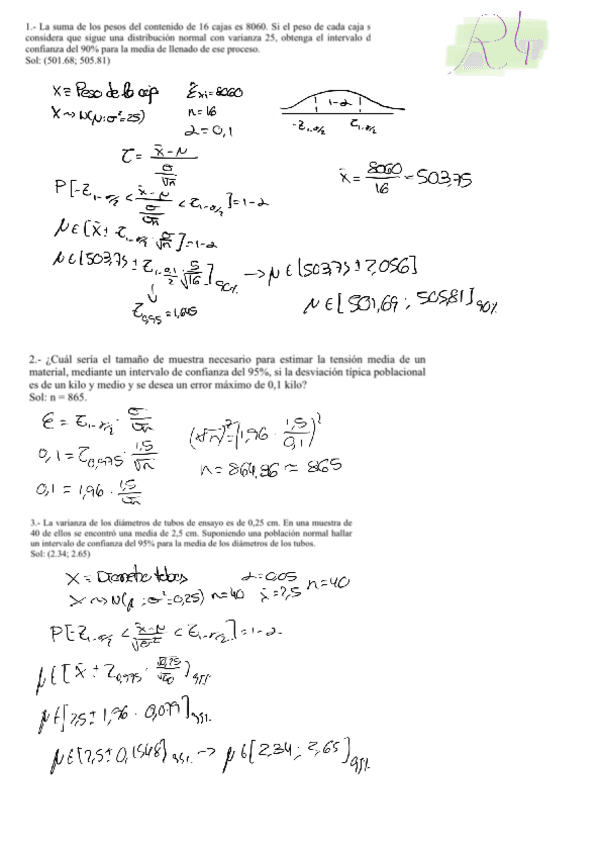 R4
1.- La suma de los pesos del contenido de 16 cajas es 8060. Si el peso de cada caja s
considera que sigue una distribución normal con varianza 25, obtenga el intervalo d
confianza del 90% para la media de llenado de ese proceso.
Sol: (501.68; 505.81)
X ≡ Peso de la caja
Σxi = 8060
X ~> N(μ; σ²=25)
n = 16
α = 0,1
1-α
-Z1-α/2
Z1-α/2
Z = (x̄ - μ) / (σ/√n)
x̄ = 8060/16 = 503,75
P[-Z1-α/2 < (x̄ - μ)/(σ/√n) < Z1-α/2] = 1-α
μ ∈ [x̄ ± Z1-α/2 · σ/√n] = 1-α
μ ∈ [503,75 ± Z1-0,1/2 · 5/√16]90% → μ ∈ [503,75 ± 2,056]
Z0,95 = 1,645
μ ∈ [501,69 ; 505,81]90%
2.- ¿Cuál sería el tamaño de muestra necesario para estimar la tensión media de un
material, mediante un intervalo de confianza del 95%, si la desviación típica poblacional
es de un kilo y medio y se desea un error máximo de 0,1 kilo?
Sol: n = 865.
ε = Z1-α/2 · σ/√n
(√n)² = (1,96 · 1,5/0,1)²
0,1 = Z0,975 · 1,5/√n
n = 864,36 ≈ 865
0,1 = 1,96 · 1,5/√n
3.- La varianza de los diámetros de tubos de ensayo es de 0,25 cm. En una muestra de
40 de ellos se encontró una media de 2,5 cm. Suponiendo una población normal hallar
un intervalo de confianza del 95% para la media de los diámetros de los tubos.
Sol: (2.34; 2.65)
X = Diametro tubos
α = 0,05
n = 40
X ~> N(μ ; σ²=0,25) n=40 x̄=2,5
P[-Z1-α/2 < < Z1-α/2] = 1-α
μ ∈ [x̄ ± Z0,975 · √0,25/√40]95%
μ ∈ [2,5 ± 1,96 · 0,079]95%
μ ∈ [2,5 ± 0,1548]95% → μ ∈ [2,34 ; 2,65]95%